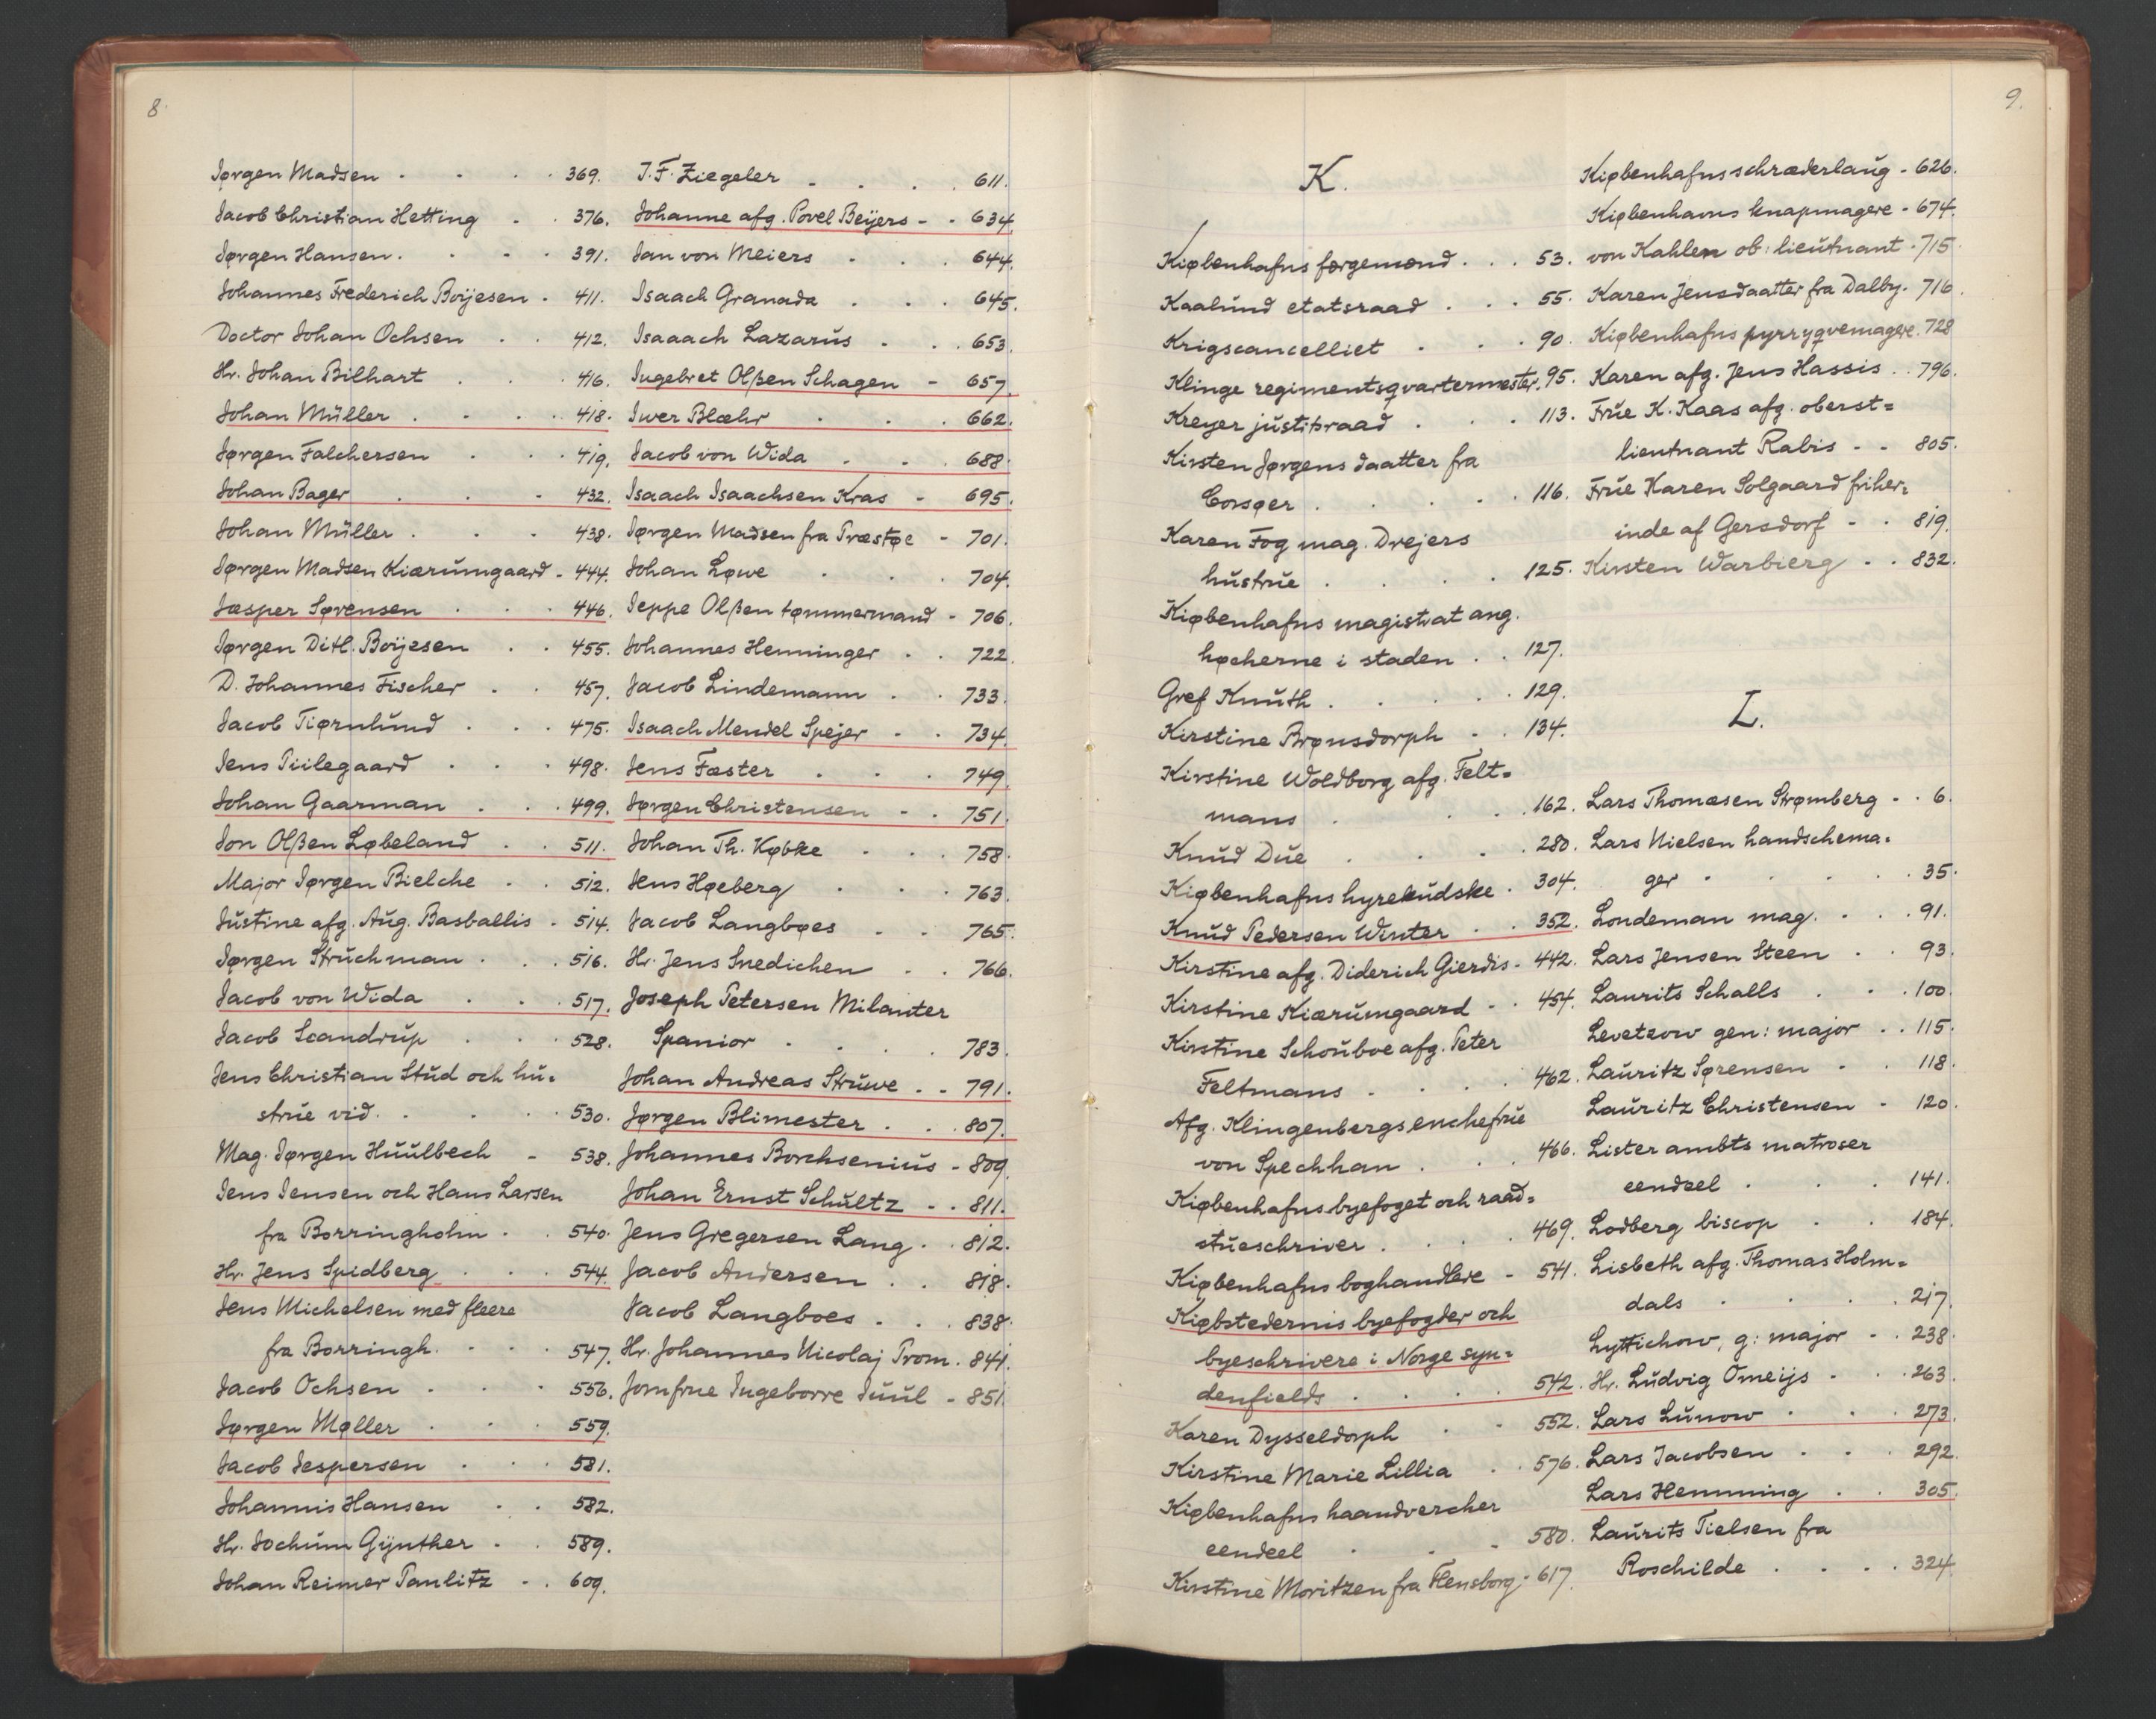 8.
Jørgen Madsen . . . . 369.
Jacob Christian Hetting . . 376.
Jørgen Hansen . . . . 391.
Johannes Frederich Boijesen . 411.
Doctor Johan Ochsen . . 412.
Hr. Johan Bilhart . . . 416.
Johan Müller . . . . 418.
Jørgen Falchersen . . . 419.
Johan Bager . . . 432.
Johan Müller . . . 438.
Jørgen Madsen Kiærumgaard - 444.
Jæsper Sørensen . . . 446.
Jørgen Ditl. Boijesen . . 455.
D. Johannes Fischer . . 457.
Jacob Tiørnlund . . . 475.
Jens Piilegaard . . . 498.
Johan Gaarman . . . 499.
Jon Olßen Løbeland . . 511.
Major Jørgen Bielche . . 512.
Justine afg. Aug. Basballis - 514.
Jørgen Struchman . . . 516.
Jacob von Wida . . . 517.
Jacob Scandrup . . . 528.
Jens Christian Stud och hu=
strue vid. . . . 530.
Mag. Jørgen Huulbech - 538.
Jens Jensen och Hans Larsen
fra Borringholm . . 540.
Hr. Jens Spidberg . . . 544.
Jens Michelsen med fleere
fra Borringh. . . . 547.
Jacob Ochsen . . . 556.
Jørgen Møller . . . 559.
Jacob Jespersen . . . 581.
Johannis Hansen . . 582.
Hr. Jochum Gijnther . . 589.
Johan Reimer Panlitz - . 609.
J. F. Ziegeler . . . . 611.
Johanne afg. Povel Beijers - - 634.
Jan von Meiers . . . 644.
Isaach Granada . . . 645.
Isaaach Lazarus . . . 653.
Ingebret Olßen Schagen - 657.
Iwer Blæhr . . . 662.
Jacob von Wida . . . 688.
Isaach Isaachsen Kras - 695.
Jørgen Madsen fra Præstøe - 701.
Johan Løwe . . . 704.
Jeppe Olßen tømmermand - 706.
Johannes Henninger . . 722.
Jacob Lindemann . . 733.
Isaach Mendel Spejer - . 734.
Jens Fæster . . . 749.
Jørgen Christensen - . 751.
Johan Th. Købke . . . 758.
Jens Høeberg . . . 763.
Jacob Langbøes . . 765.
Hr. Jens Snedichen . . 766.
Joseph Petersen Milanter
Spanior . . . . 783.
Johan Andreas Struwe . - 791.
Jørgen Blimester . . . 807.
Johannes Borchsenius - 809.
Johan Ernst Schultz - . 811.
Jens Gregersen Lang . . 812.
Jacob Andersen . . 818.
Jacob Langboes . . . 838.
Hr. Johannes Nicolaj Prom . 841.
Jomfrue Ingeborre Juul - 851.
9.
K.
Kiøbenhafns førgemænd . . . 53.
Kaalund etatsraad . . . 55.
Krigscancelliet . . . 90.
Klinge regimentsqvartermester. 95.
Kreyer justitsraad . . . 113.
Kirsten Jørgens daatter fra
Corsøer . . . . 116.
Karen Fog mag. Drejers
hustrue . . . . 125.
Kiøbenhafns magistrat ang.
høcherne i staden . . 127.
Gref Knuth . . . . 129.
Kirstine Brønsdorph - . 134.
Kirstine Woldborg afg. Felt=
mans . . . 162.
Knud Due . . . . 280.
Kiøbenhafns hyrekudske . 304.
Knud Pedersen Winter . . 352.
Kirstine afg. Diderich Gierdis - 442.
Kirstine Kiærumgaard - . 454.
Kirstine Schouboe afg. Peter
Feltmans . . . 462.
Afg. Klingenbergs enchefrüe
von Spechhan . . . 466.
Kiøbenhafns byefoget och raad=
stueschriver . . . . 469.
Kiøbenhafns boghandlere - 541.
Kiøbstedernis byefogder och
byeschrivere i Norge syn=
denfields . . . . 542.
Karen Dysseldorph . . 552.
Kirstine Marie Lillia . . 576.
Kiøbenhafns haandvercher
eendeel . . . 580.
Kirstine Moritzen fra Flensborg - 617.
Kiøbenhafns schræderlaug - 626.
Kiøbenhavns knapmagere - 674.
von Kahlen ob: lieutnant . 715.
Karen Jensdaatter fra Dalby. 716.
Kiøbenhafns pyrryqvemagere. 728
Karen afg. Jens Hassis . . 796.
Frue K. Kaas afg. oberst=
lieutnant Rabis - - 805.
Frue Karen Solgaard friher=
inde af Gersdorf - . 819.
Kirsten Warbierg - . 832.
L.
Lars Thomæsen Strømberg - . 6.
Lars Nielsen handschema=
ger . . . . 35.
Londeman mag. . . . 91.
Lars Jensen Steen . . 93.
Laurits Schalls . . . 100.
Levetzow gen: major . . 115.
Lauritz Sørensen . . 118.
Lauritz Christensen - 120.
Lister ambts matroser
eendeel . . . 141.
Lodberg biscop . . 184.
Lisbeth afg. Thomas Holm=
dals . . . . 217.
Lyttichow, g: major - . 238.
Hr. Ludvig Omeijs - . . 263.
Lars Lunow . . . 273.
Lars Jacobsen . . . 292.
Lars Hemming . . 305.
Laurits Tielsen fra
Roschilde . . . . 324.